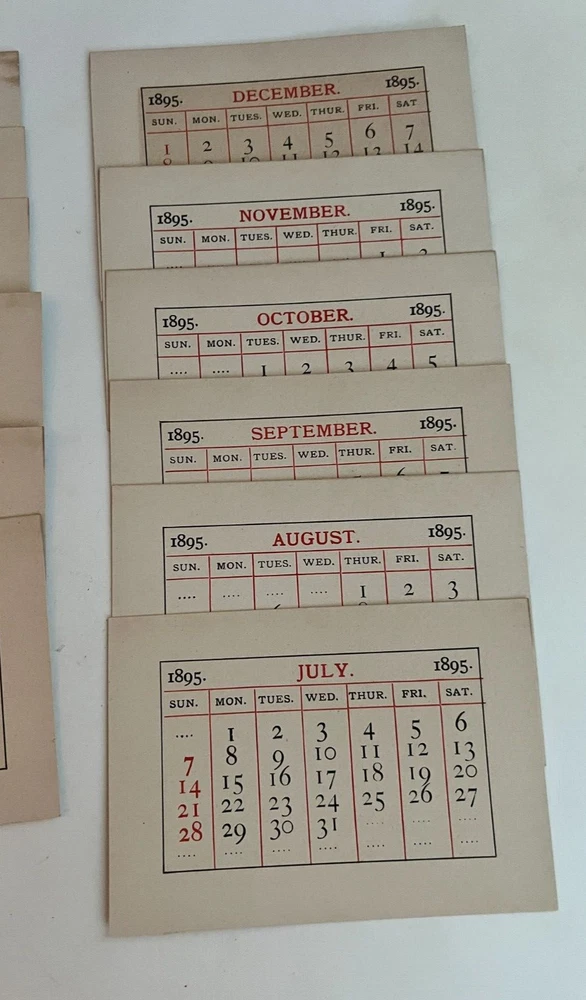 1895. DECEMBER. 1895.
SUN. MON. TUES. WED. THUR. FRI. SAT
1 2 3 4 5 6 7
1895. NOVEMBER. 1895.
SUN. MON. TUES. WED. THUR. FRI. SAT.
1895. OCTOBER. 1895.
SUN. MON. TUES. WED. THUR. FRI. SAT.
.... .... 1 2 3 4 5
1895. SEPTEMBER. 1895.
SUN. MON. TUES. WED. THUR. FRI. SAT.
1895. AUGUST. 1895.
SUN. MON. TUES. WED. THUR. FRI. SAT.
.... .... .... .... 1 2 3
1895. JULY. 1895.
SUN. MON. TUES. WED. THUR. FRI. SAT.
.... 1 2 3 4 5 6
7 8 9 10 11 12 13
14 15 16 17 18 19 20
21 22 23 24 25 26 27
28 29 30 31 .... .... ....
.... .... .... .... .... .... ....